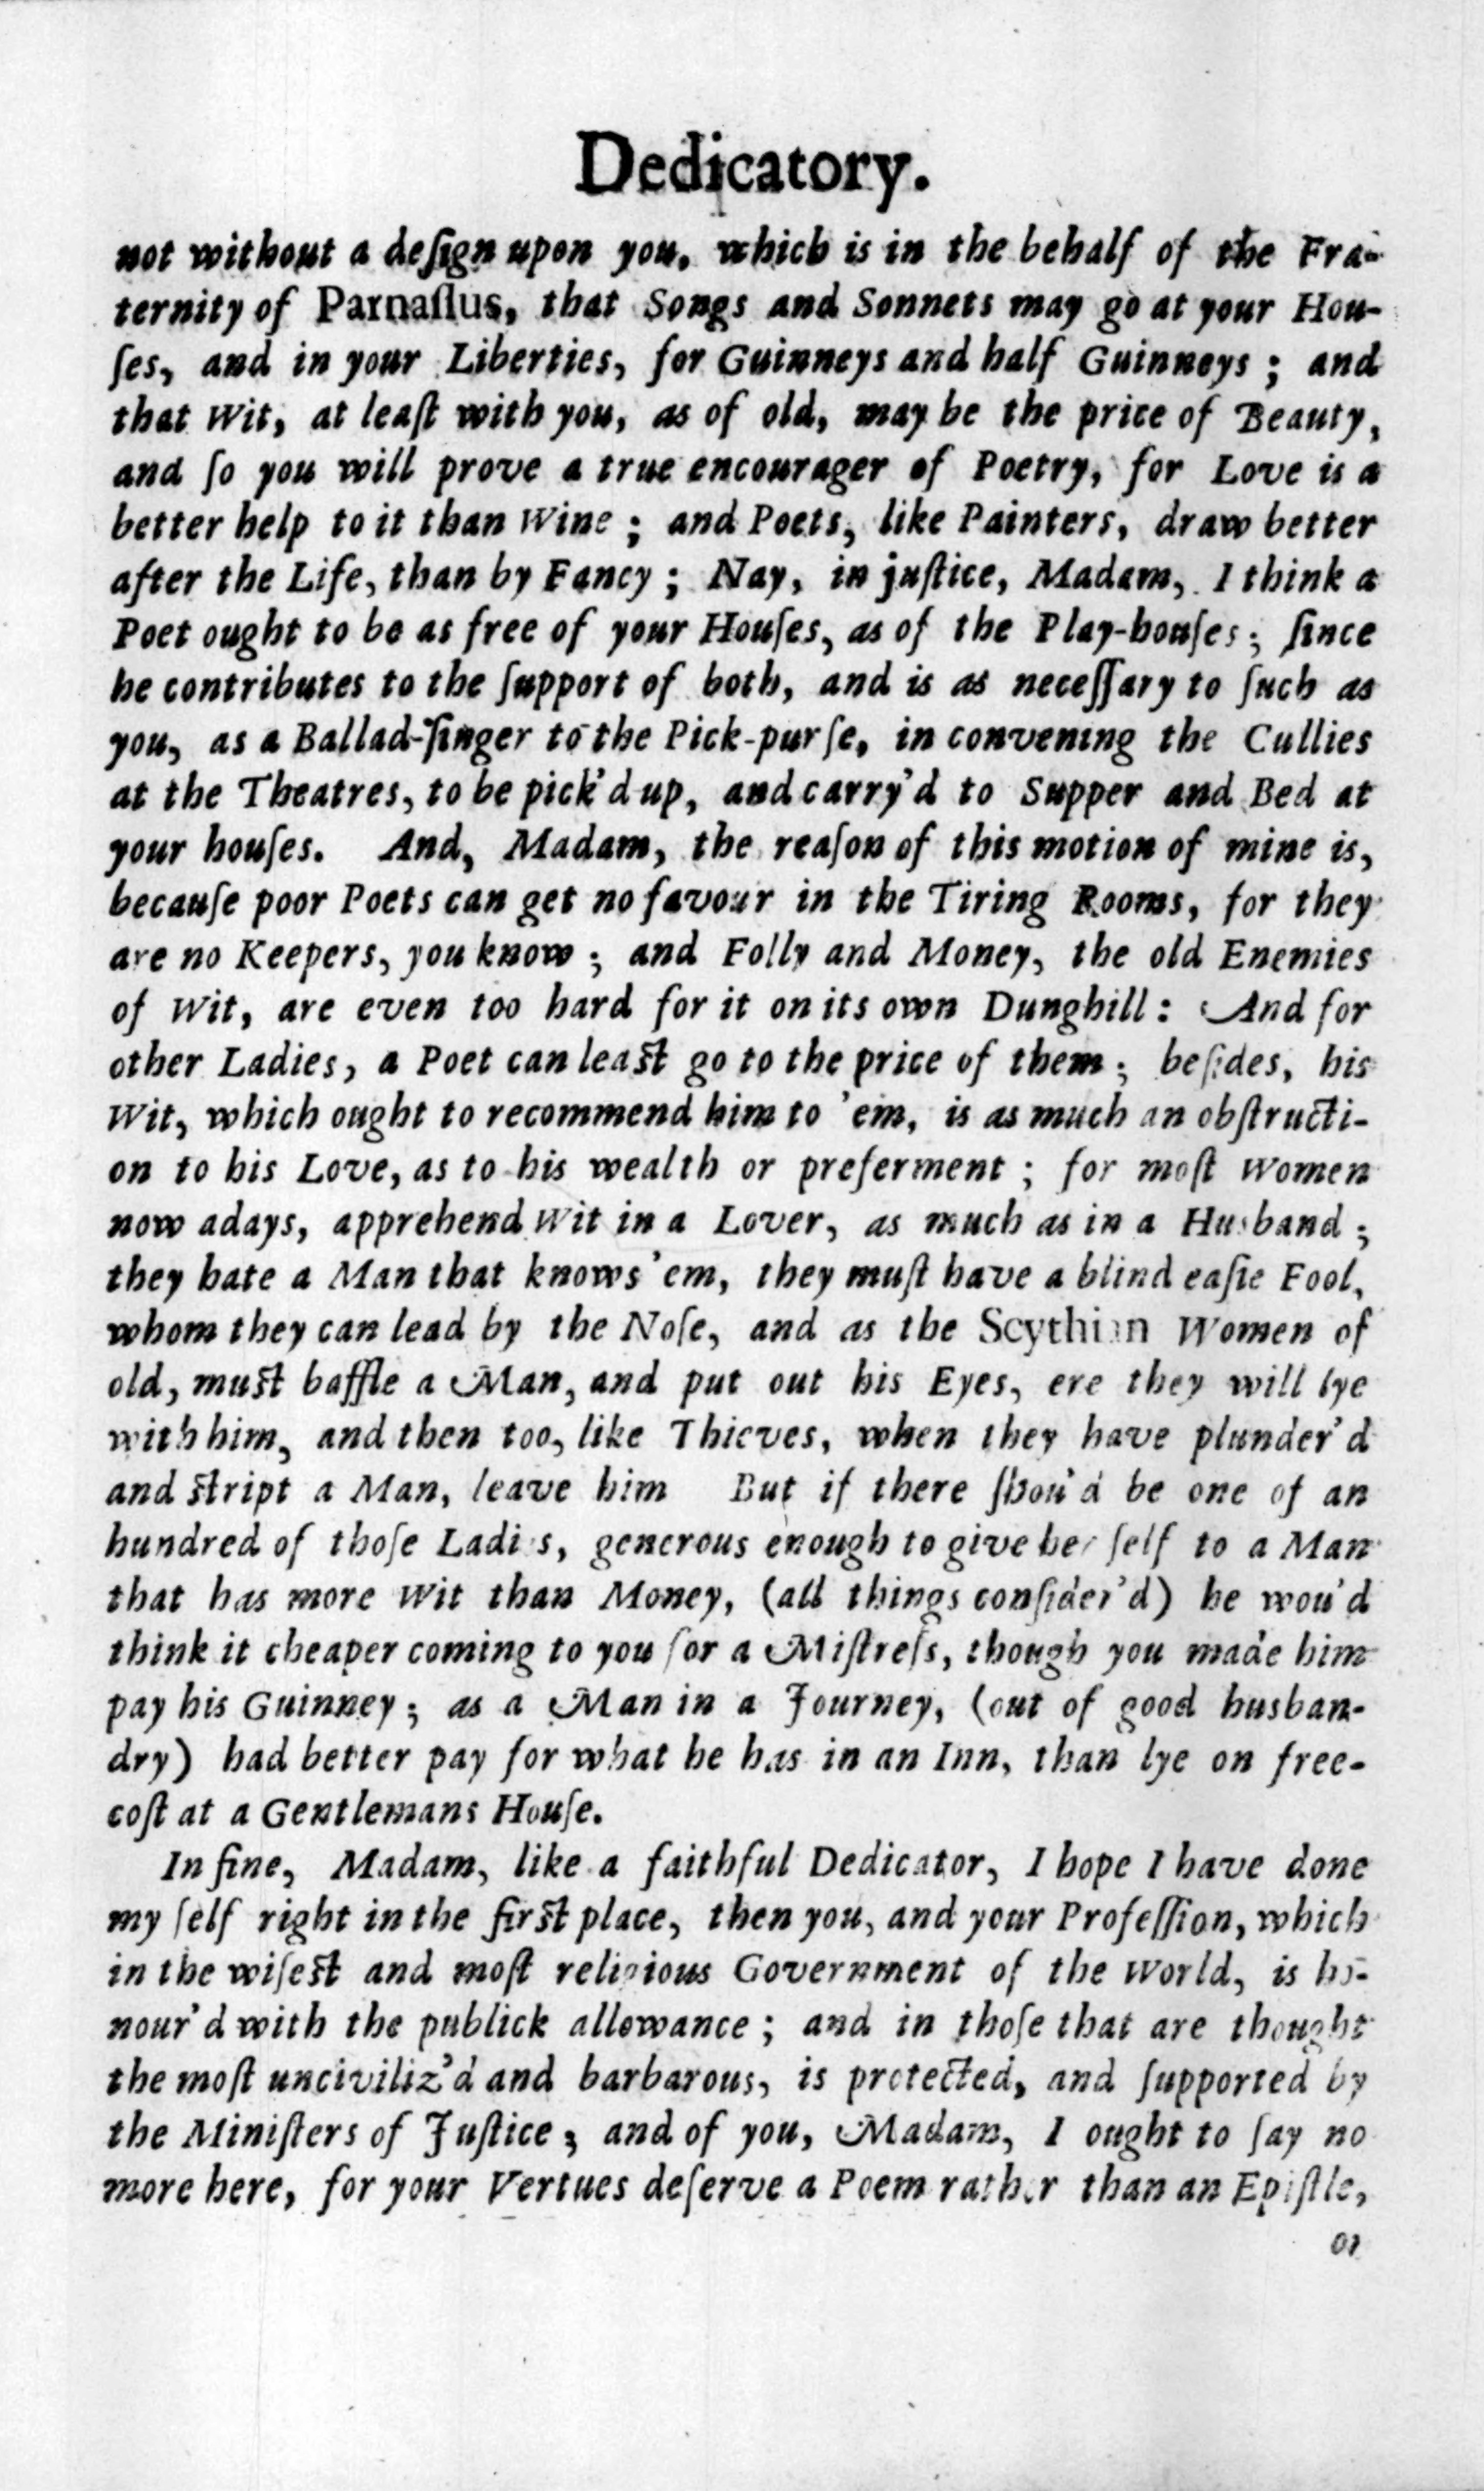 Dedicatory.
not without a deſign upon you, which is in the behalf of the Fra-
ternity of Parnaſſus, that Songs and Sonnets may go at your Hou-
ſes, and in your Liberties, for Guinneys and half Guinneys ; and
that Wit, at leaſt with you, as of old, may be the price of Beauty,
and ſo you will prove a true encourager of Poetry, for Love is a
better help to it than Wine ; and Poets, like Painters, draw better
after the Life, than by Fancy ; Nay, in juſtice, Madam, I think a
Poet ought to be as free of your Houſes, as of the Play-houſes ; ſince
he contributes to the ſupport of both, and is as neceſſary to ſuch as
you, as a Ballad-ſinger to the Pick-purſe, in convening the Cullies
at the Theatres, to be pick'd up, and carry'd to Supper and Bed at
your houſes. And, Madam, the reaſon of this motion of mine is,
becauſe poor Poets can get no favour in the Tiring Rooms, for they
are no Keepers, you know ; and Folly and Money, the old Enemies
of Wit, are even too hard for it on its own Dunghill : And for
other Ladies, a Poet can leaſt go to the price of them ; beſides, his
Wit, which ought to recommend him to 'em, is as much an obſtructi-
on to his Love, as to his wealth or preferment ; for moſt Women
now adays, apprehend Wit in a Lover, as much as in a Husband ;
they hate a Man that knows 'em, they muſt have a blind eaſie Fool,
whom they can lead by the Noſe, and as the Scythian Women of
old, muſt baffle a Man, and put out his Eyes, ere they will lye
with him, and then too, like Thieves, when they have plunder'd
and ſtript a Man, leave him But if there ſhou'd be one of an
hundred of thoſe Ladies, generous enough to give her ſelf to a Man
that has more Wit than Money, (all things conſider'd) he wou'd
think it cheaper coming to you for a Miſtreſs, though you made him
pay his Guinney ; as a Man in a Journey, (out of good husban-
dry) had better pay for what he has in an Inn, than lye on free-
coſt at a Gentlemans Houſe.
In fine, Madam, like a faithful Dedicator, I hope I have done
my ſelf right in the firſt place, then you, and your Profeſſion, which
in the wiſeſt and moſt religious Government of the World, is ho-
nour'd with the publick allowance ; and in thoſe that are thought
the moſt unciviliz'd and barbarous, is protected, and ſupported by
the Miniſters of Juſtice ; and of you, Madam, I ought to ſay no
more here, for your Vertues deſerve a Poem rather than an Epiſtle,
or